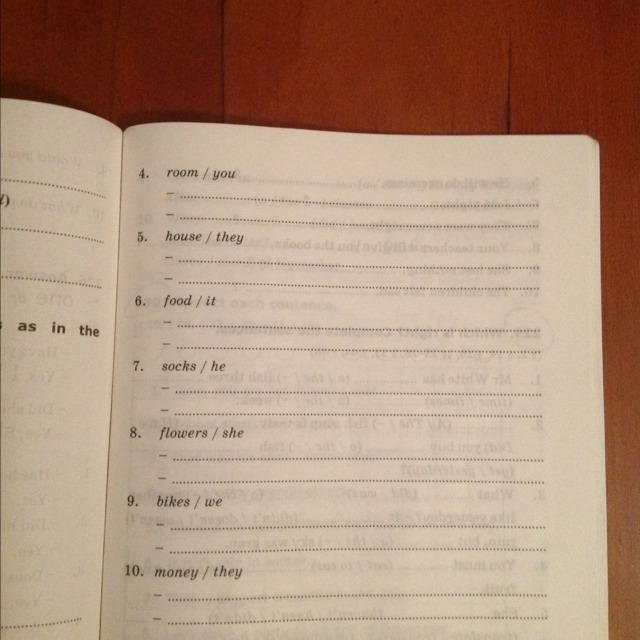 4. room / you
–
–
5. house / they
–
–
6. food / it
–
–
7. socks / he
–
–
8. flowers / she
–
–
9. bikes / we
–
–
10. money / they
–
–
as in the